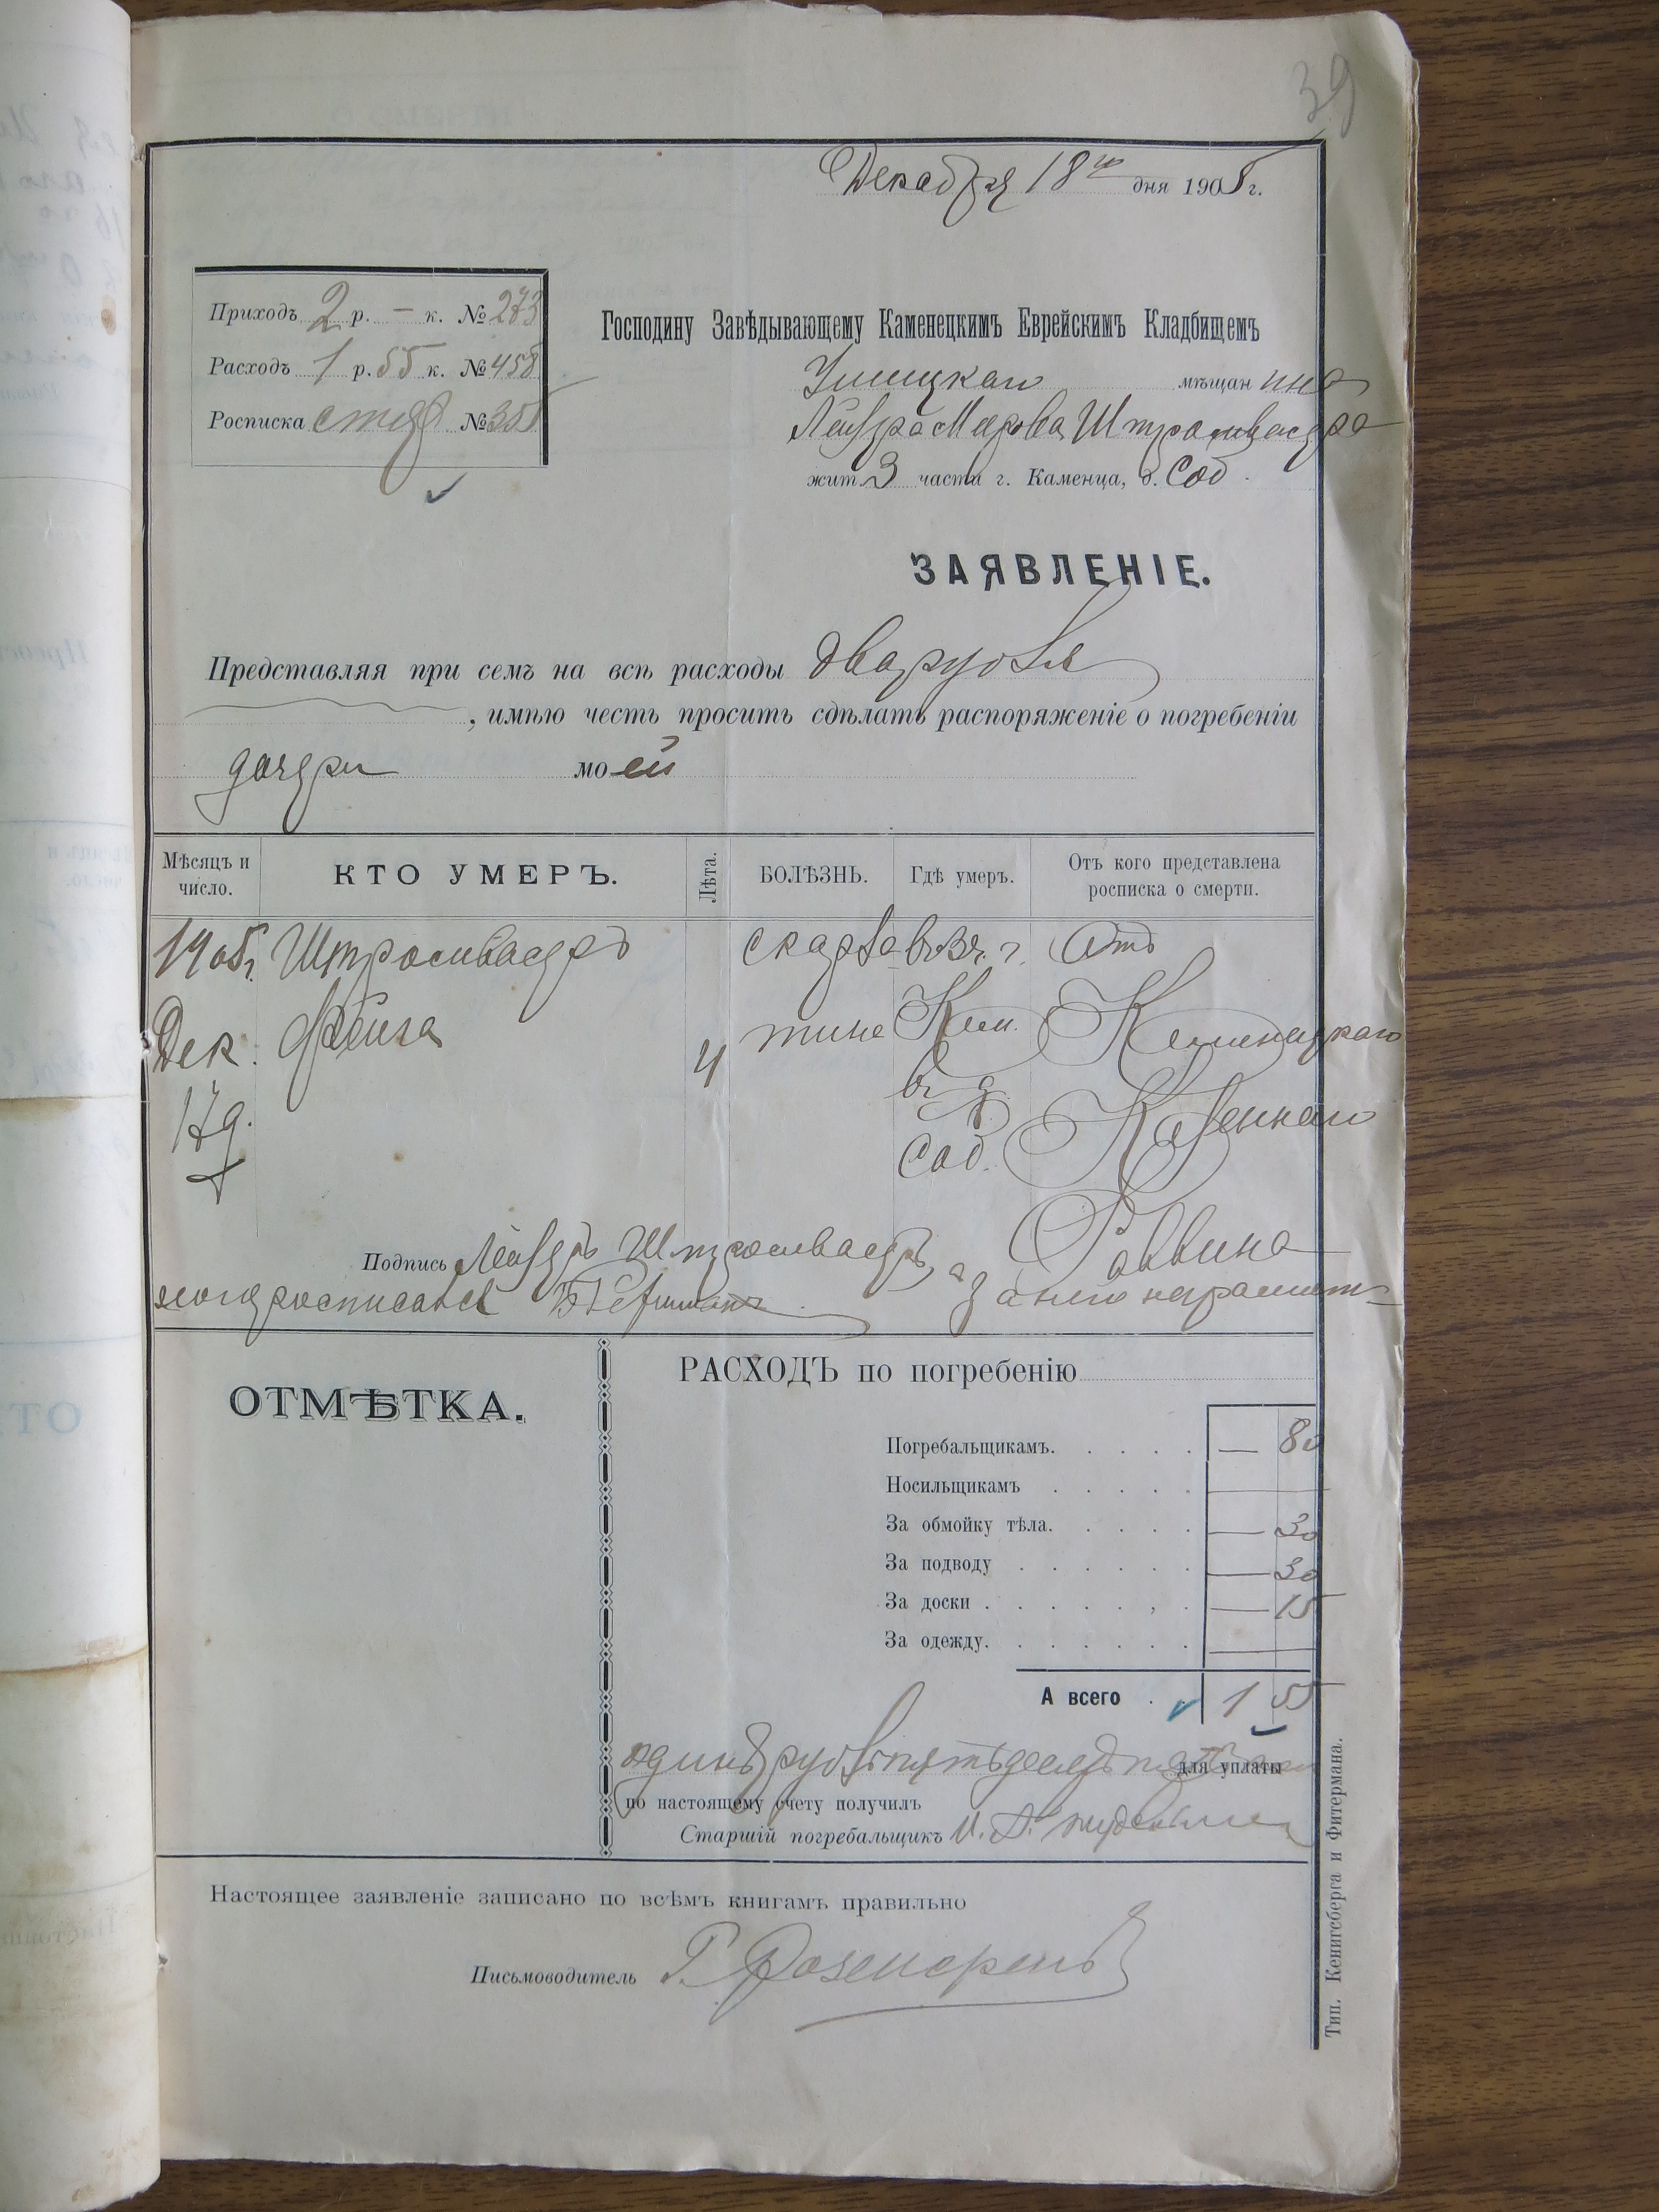 39
Декабря 18го дня 1905 г.
Приходъ 2 р. — к. № 273
Расходъ 1 р. 55 к. № 458
Росписка № 355
Господину Завѣдывающему Каменецкимъ Еврейскимъ Кладбищемъ
Ушицкаго мѣщанина
Лейзера Меерова Штромвасера
жит. 3 части г. Каменца, д. Соб.
ЗАЯВЛЕНІЕ.
Представляя при семъ на всѣ расходы два рубля
, имѣю честь просить сдѣлать распоряженіе о погребеніи
дочери моей
Мѣсяцъ и число. КТО УМЕРЪ. Лѣта. БОЛѢЗНЬ. Гдѣ умеръ. Отъ кого представлена росписка о смерти.
1905 г. Штромвасеръ скарла въ 3 ч. г. Отъ
Дек. Фейга 4 тина Кам. Каменецкаго
17 д. въ д. Казеннаго
Соб. Раввина
Подпись Лейзеръ Штромвасеръ, а за него неграмот-
наго росписался
ОТМѢТКА.
РАСХОДЪ по погребенію
Погребальщикамъ. — 80
Носильщикамъ —
За обмойку тѣла. — 30
За подводу — 30
За доски — 15
За одежду. —
А всего 1 55
одинъ рубль пятьдесятъ пять коп для уплаты
по настоящему счету получилъ
Старшій погребальщикъ
Настоящее заявленіе записано по всѣмъ книгамъ правильно
Письмоводитель
Тип. Кенигсберга и Фитермана.